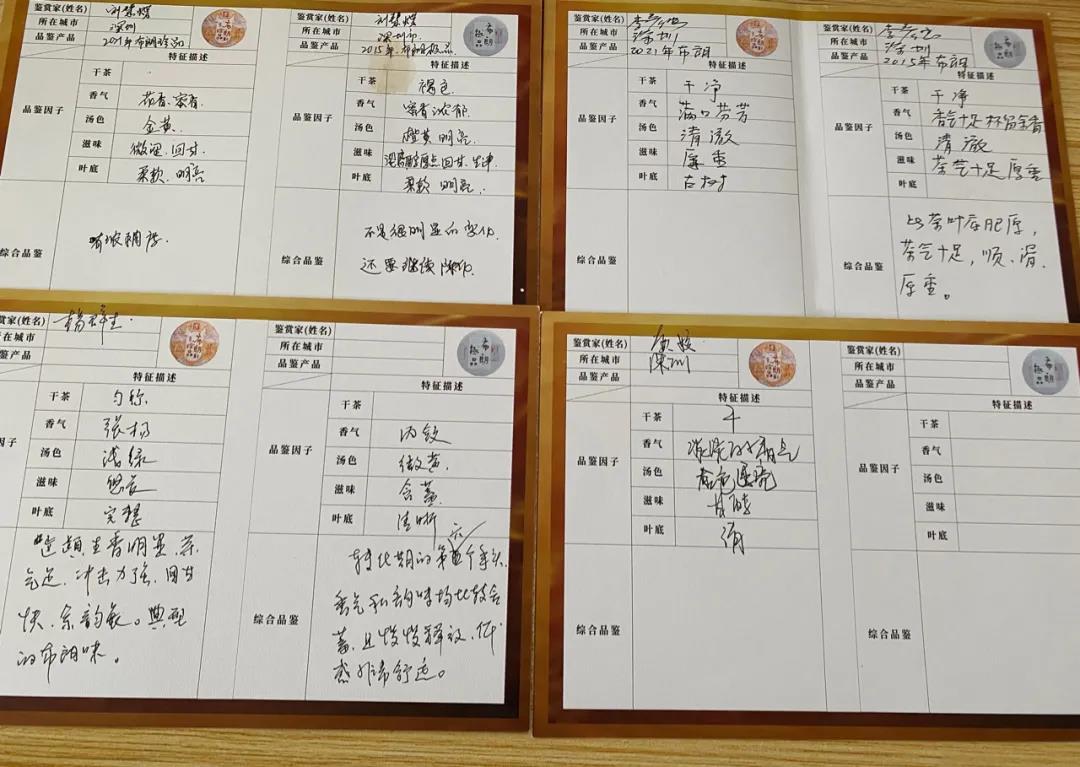 鉴赏家(姓名)
所在城市 深圳
品鉴产品 2021年布朗珍品
特征描述
品鉴因子
干茶
香气 花香.蜜香.
汤色 金黄.
滋味 微涩.回甘.
叶底 柔软.明亮
综合品鉴
鉴赏家(姓名)
所在城市 深圳市
品鉴产品 2015年布朗极品
特征描述
干茶 褐色.
香气 蜜香浓郁
汤色 橙黄明亮.
滋味 回甘.生津
叶底 柔软 明亮.
不是很明显的变化.
还要继续陈化.
鉴赏家(姓名)
所在城市 深圳
品鉴产品 2021年布朗
特征描述
品鉴因子
干茶 干净
香气 满口芬芳
汤色 清澈
滋味 厚重
叶底 古树
综合品鉴
鉴赏家(姓名)
所在城市 深圳
品鉴产品 2015年布朗
特征描述
品鉴因子
干茶 干净
香气 香气十足杯留余香
汤色 清澈
滋味 茶气十足厚重
叶底
综合品鉴
茶叶底肥厚,
茶气十足,顺、滑、
厚重。
鉴赏家(姓名)
所在城市
品鉴产品
特征描述
因子
干茶 匀称
香气 张扬
汤色 浅绿
滋味 悠长
叶底 完整
香明显.茶
气足.冲击力强.回甘
快.余韵长。典型
的布朗味。
鉴赏家(姓名)
所在城市
品鉴产品
特征描述
品鉴因子
干茶
香气 内敛
汤色 微黄.
滋味 含蓄.
叶底 清晰
综合品鉴
转化期的第六个年头.
香气和韵味均比较含
蓄.且慢慢释放.体
感非常舒适。
鉴赏家(姓名)
所在城市 深圳
品鉴产品
特征描述
品鉴因子
干茶 干
香气
汤色
滋味 甘醇
叶底
综合品鉴
鉴赏家(姓名)
所在城市
品鉴产品
特征描述
品鉴因子
干茶
香气
汤色
滋味
叶底
综合品鉴